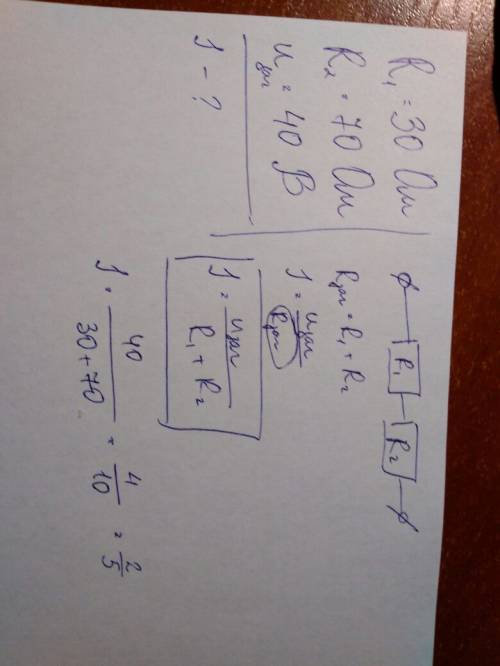 R₁ = 30 Ом
R₂ = 70 Ом
Uзаг = 40 В
I - ?
R₁ R₂
Rзаг = R₁ + R₂
I = Uзаг / Rзаг
I = Uзаг / R₁ + R₂
I = 40 / 30+70 = 4 / 10 = 2 / 5